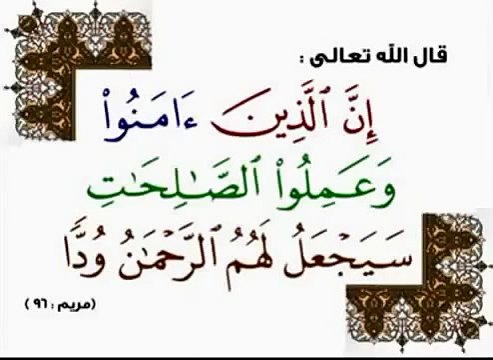 قال الله تعالى :
إِنَّ ٱلَّذِينَ ءَامَنُوا۟
وَعَمِلُوا۟ ٱلصَّـٰلِحَـٰتِ
سَيَجْعَلُ لَهُمُ ٱلرَّحْمَـٰنُ وُدًّا
(مريم : ٩٦)